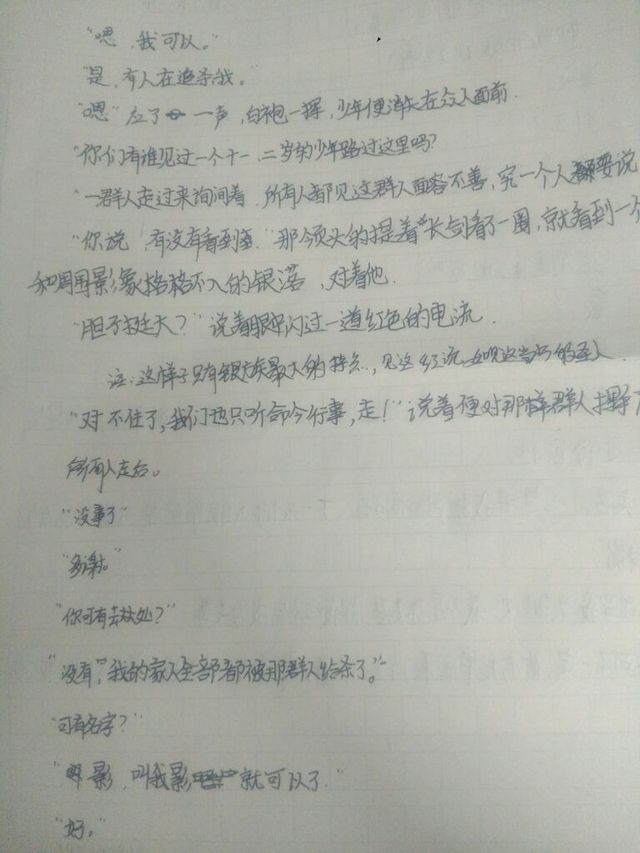 "嗯，我可以。"
是，有人在追杀我。
"嗯"应了一声，白袍一挥，少年便消失在众人面前.
"你们有谁见过一个十一，二岁的少年路过这里吗?
"一群人走过来询问着，所有人都见这群人面容不善，究一个人都要说
"你说，有没有看到。"那领头的提着长剑看了一圈，就看到一个
和周围景象格格不入的银 ，对着他.
"胆子挺大?"说着眼中闪过一道红色的电流.
注:这样子只有银族最大的特点，见这红
"对不住了，我们也只听命令行事，走!"说着便对那群人
所有人走后。
"没事了"
"多谢。"
"你可有去处?"
"没有，我的家人全部都被那群人给杀了。"
"可有名字?"
"影，叫我影就可以了."
"好。"